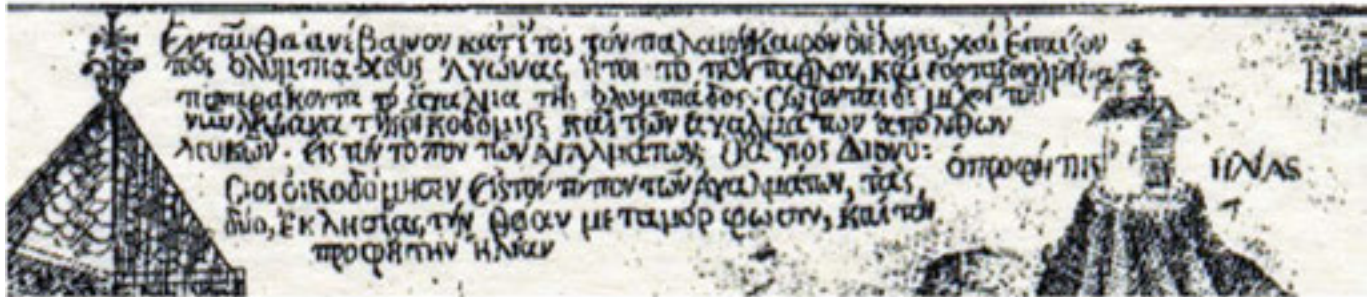 Ενταῦθα ἀνέβαινον κατὰ τὸν παλαιὸν Καιρὸν οἱ ἕλληνες, καὶ ἔπαιζον
τοὺς ὀλυμπιακοὺς Ἀγῶνας, ἤτοι τὸ πένταθλον, καὶ
τὰ τῆς ὀλυμπιάδος. σῴζονται δὲ μέχρι τοῦ
νῦν λείψανα τῆς οἰκοδομῆς καὶ τῶν ἀγαλμάτων ἀπὸ λίθων
λευκῶν. εἰς τὸν τόπον τῶν ΑΓΑΛΜάτων, ὁ ἅγιος Διονύ:
σιος οἰκοδόμησεν εἰς τὸν τόπον τῶν ἀγαλμάτων, τὰς,
δύο, ἐκλησίας, τὴν θείαν μεταμόρφωσιν, καὶ τὸν
προφήτην ἠλίαν
ὁ προφήτης ἠλίας